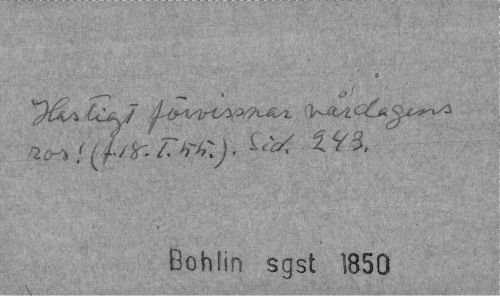 Hastigt förvissnar vårdagens
ros! (f. 18. I. 55.). Sid. 243.
Bohlin sgst 1850